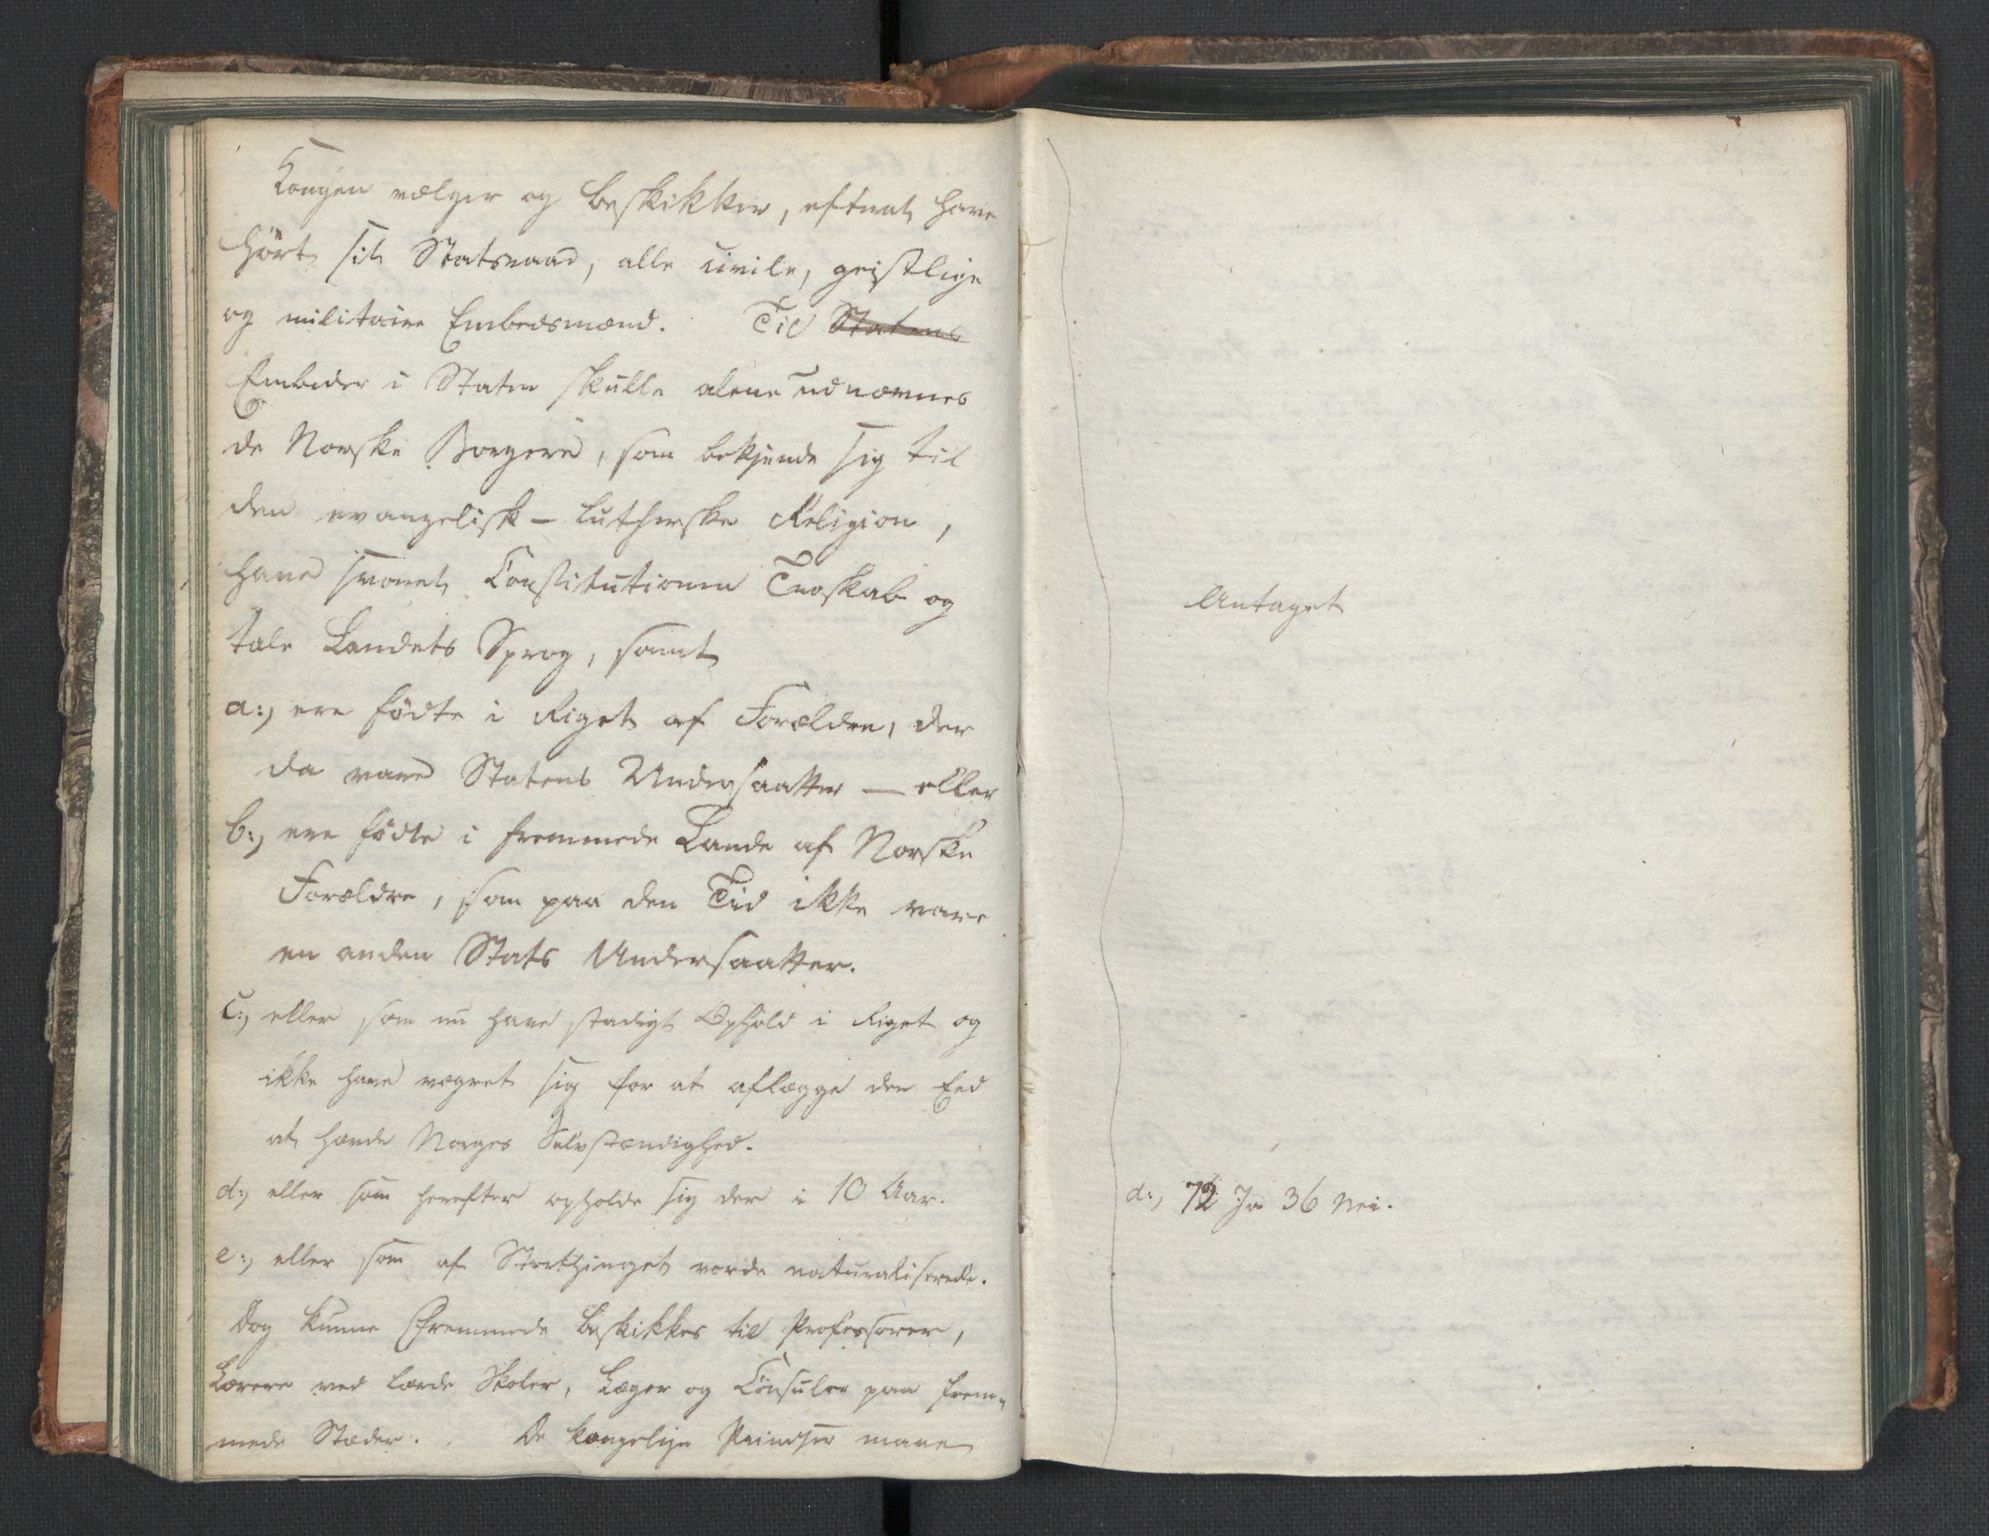 Kongen vælger og beskikker, efterat have
hørt sit Statsraad, alle civile, geistlige
og militaire Embedsmænd. Til Statens
Embeder i Staten skulle alene udnævnes
de Norske Borgere, som bekjende sig til
den evangelisk-lutherske Religion,
have svoret Constitutionen Troskab og
tale Landets Sprog, samt
a:, ere fødte i Riget af Forældre, der
da vare Statens Undersaatter — eller
b:, ere fødte i fremmede Lande af Norske
Forældre, som paa den Tid ikke vare
en anden Stats Undersaatter.
c:, eller som nu have stadigt Ophold i Riget og
ikke have vægret sig for at aflægge den Eed
at hævde Norges Selvstændighed.
d:, eller som herefter opholde sig der i 10 Aar.
e:, eller som af Storthinget vorde naturaliserede.
Dog kunne Fremmede beskikkes til Professorer,
Lærere ved lærde Skoler, Læger og Consuler paa frem-
mede Stæder. De kongelige Prindser maae
Antaget
d:, 72 Ja 36 Nei.